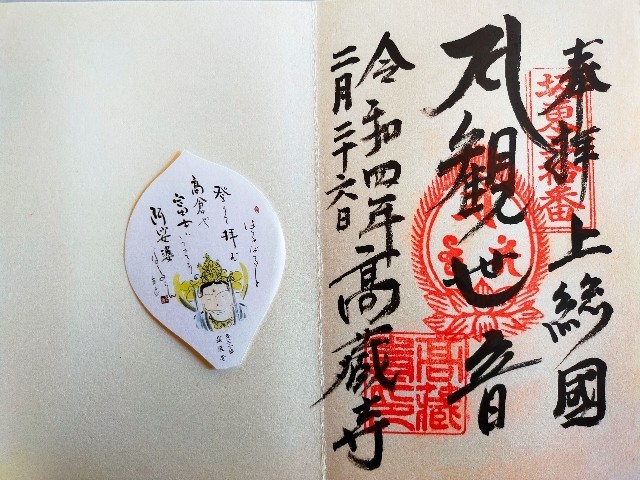 奉拝 上総國
観世音
令和四年 高蔵寺
二月二十六日
坂東三十番
高蔵
はるばると
登りて拝む
高倉や
富士にうつろう
阿娑婆